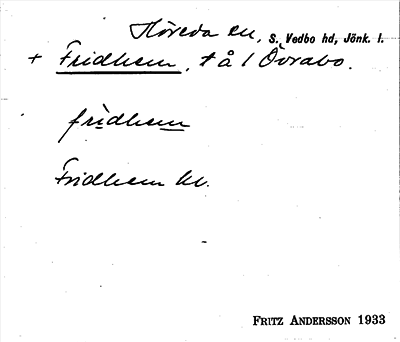 Höreda sn, S. Vedbo hd, Jönk. l.
+ Fridhem, tå l Övrabo.
frìdhem
Fridhem kv.
FRITZ ANDERSSON 1933